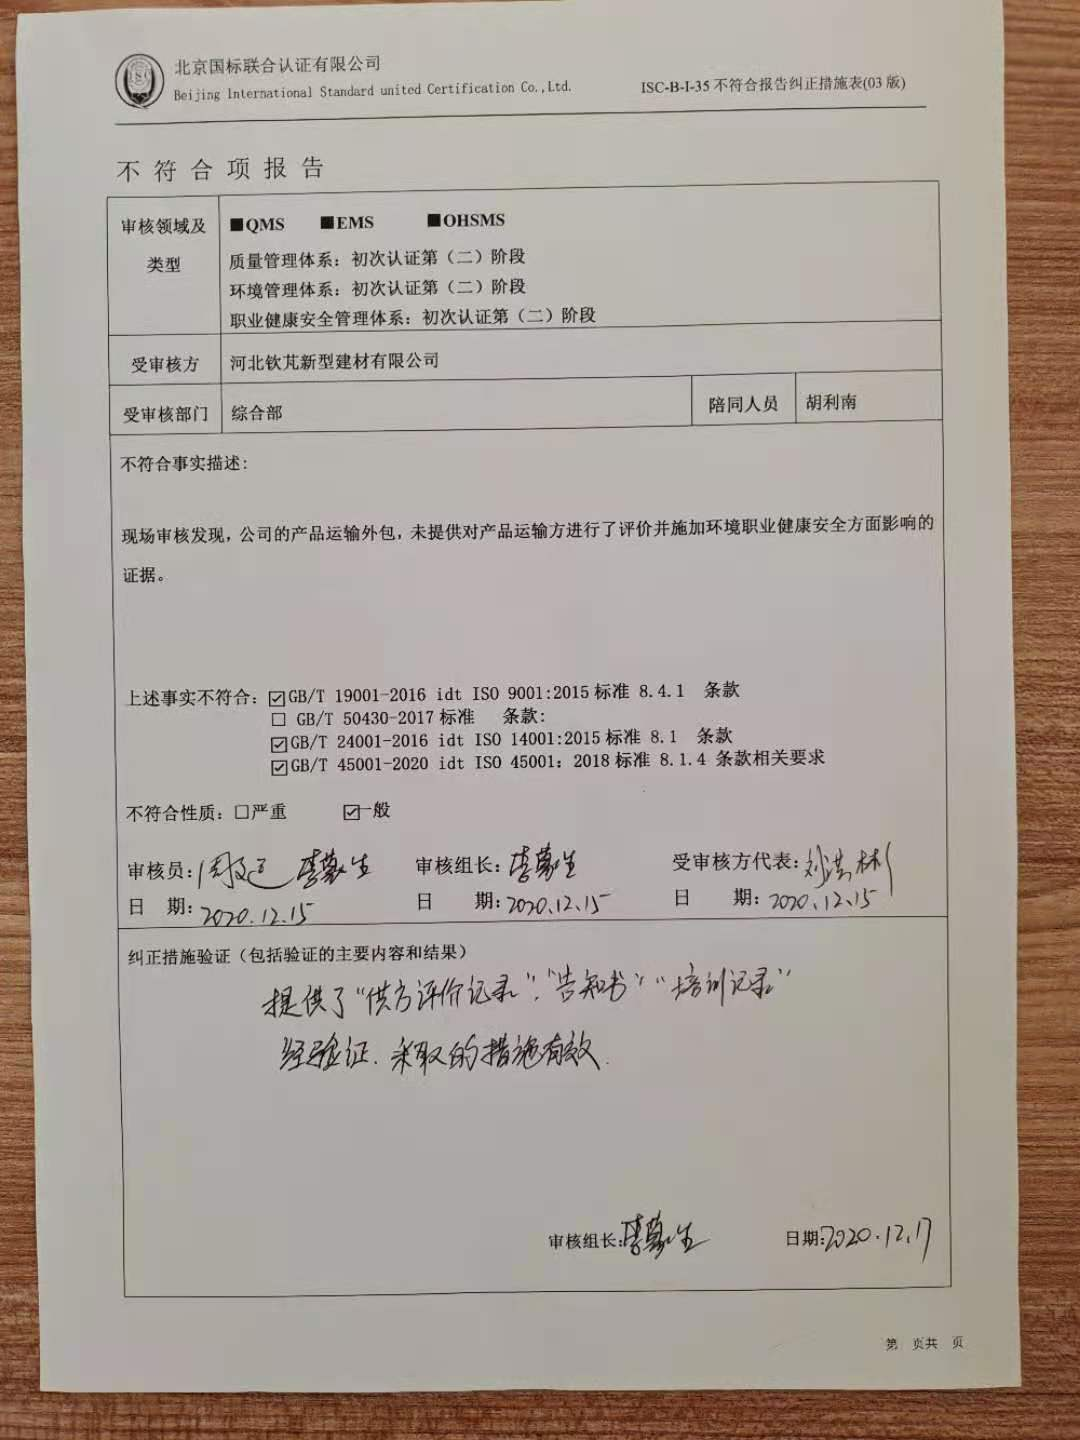 北京国标联合认证有限公司
Beijing International Standard united Certification Co.,Ltd.
ISC-B-I-35 不符合报告纠正措施表(03 版)
不符合项报告
审核领域及类型
■QMS ■EMS ■OHSMS
质量管理体系：初次认证第（二）阶段
环境管理体系：初次认证第（二）阶段
职业健康安全管理体系：初次认证第（二）阶段
受审核方 河北钦芃新型建材有限公司
受审核部门 综合部 陪同人员 胡利南
不符合事实描述:
现场审核发现，公司的产品运输外包，未提供对产品运输方进行了评价并施加环境职业健康安全方面影响的
证据。
上述事实不符合：☑GB/T 19001-2016 idt ISO 9001:2015 标准 8.4.1 条款
☐ GB/T 50430-2017 标准 条款:
☑GB/T 24001-2016 idt ISO 14001:2015 标准 8.1 条款
☑GB/T 45001-2020 idt ISO 45001：2018 标准 8.1.4 条款相关要求
不符合性质：☐严重 ☑一般
审核员: 审核组长: 受审核方代表:
日 期: 2020.12.15 日 期: 2020.12.15 日 期: 2020.12.15
纠正措施验证（包括验证的主要内容和结果）
提供了“供方评价记录”、“告知书”“培训记录”
经验证、采取的措施有效.
审核组长: 日期:2020.12.17
第 页共 页